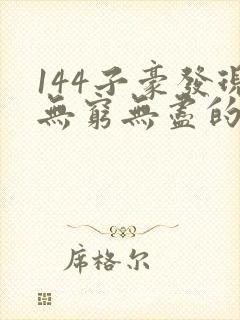 144子豪發現
無窮無盡的
席格尔